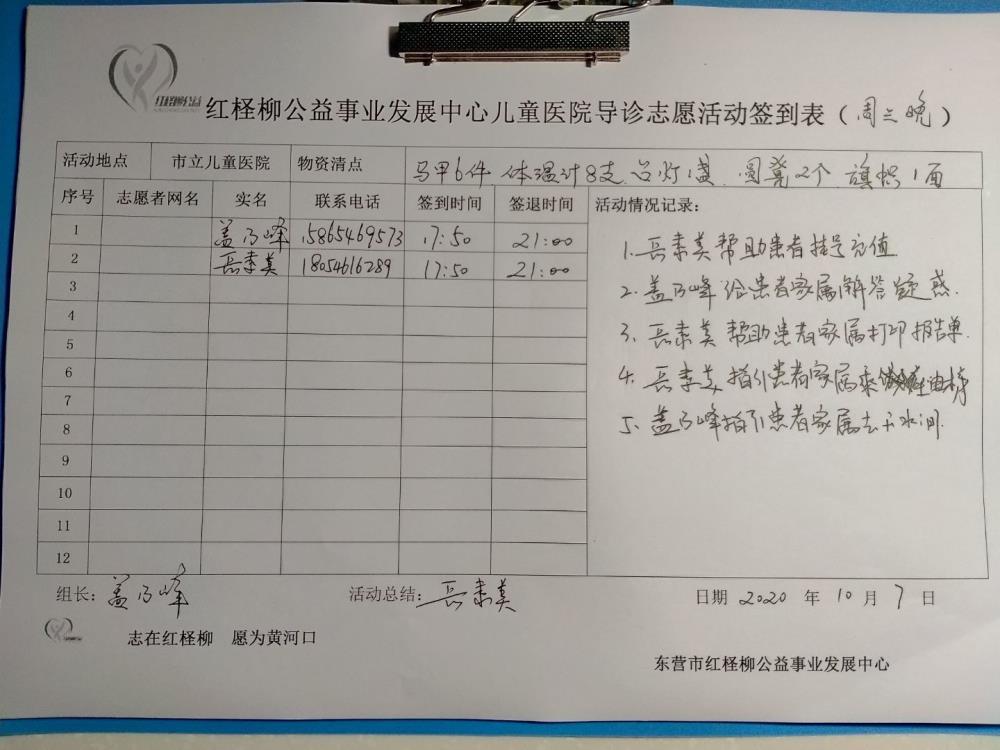 红柽柳公益
红柽柳公益事业发展中心儿童医院导诊志愿活动签到表（周三晚）
活动地点 市立儿童医院 物资清点 马甲6件 体温计8支 台灯1盏 圆凳2个 旗帜1面
序号 志愿者网名 实名 联系电话 签到时间 签退时间 活动情况记录：
1 盖乃峰 15865469573 17:50 21:00
2 岳素美 18054616289 17:50 21:00
3
4
5
6
7
8
9
10
11
12
1.岳素美帮助患者挂号充值
2.盖乃峰给患者家属解答疑惑.
3.岳素美帮助患者家属打印报告单.
4.岳素美指引患者家属乘电梯
5.盖乃峰指引患者家属去开水间.
组长：盖乃峰 活动总结：岳素美 日期 2020 年 10 月 7 日
志在红柽柳 愿为黄河口
东营市红柽柳公益事业发展中心